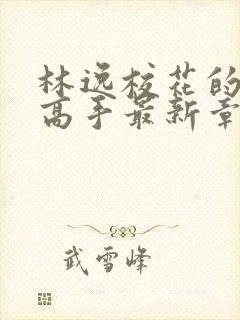 林逸校花的
高手最新章
武雪峰